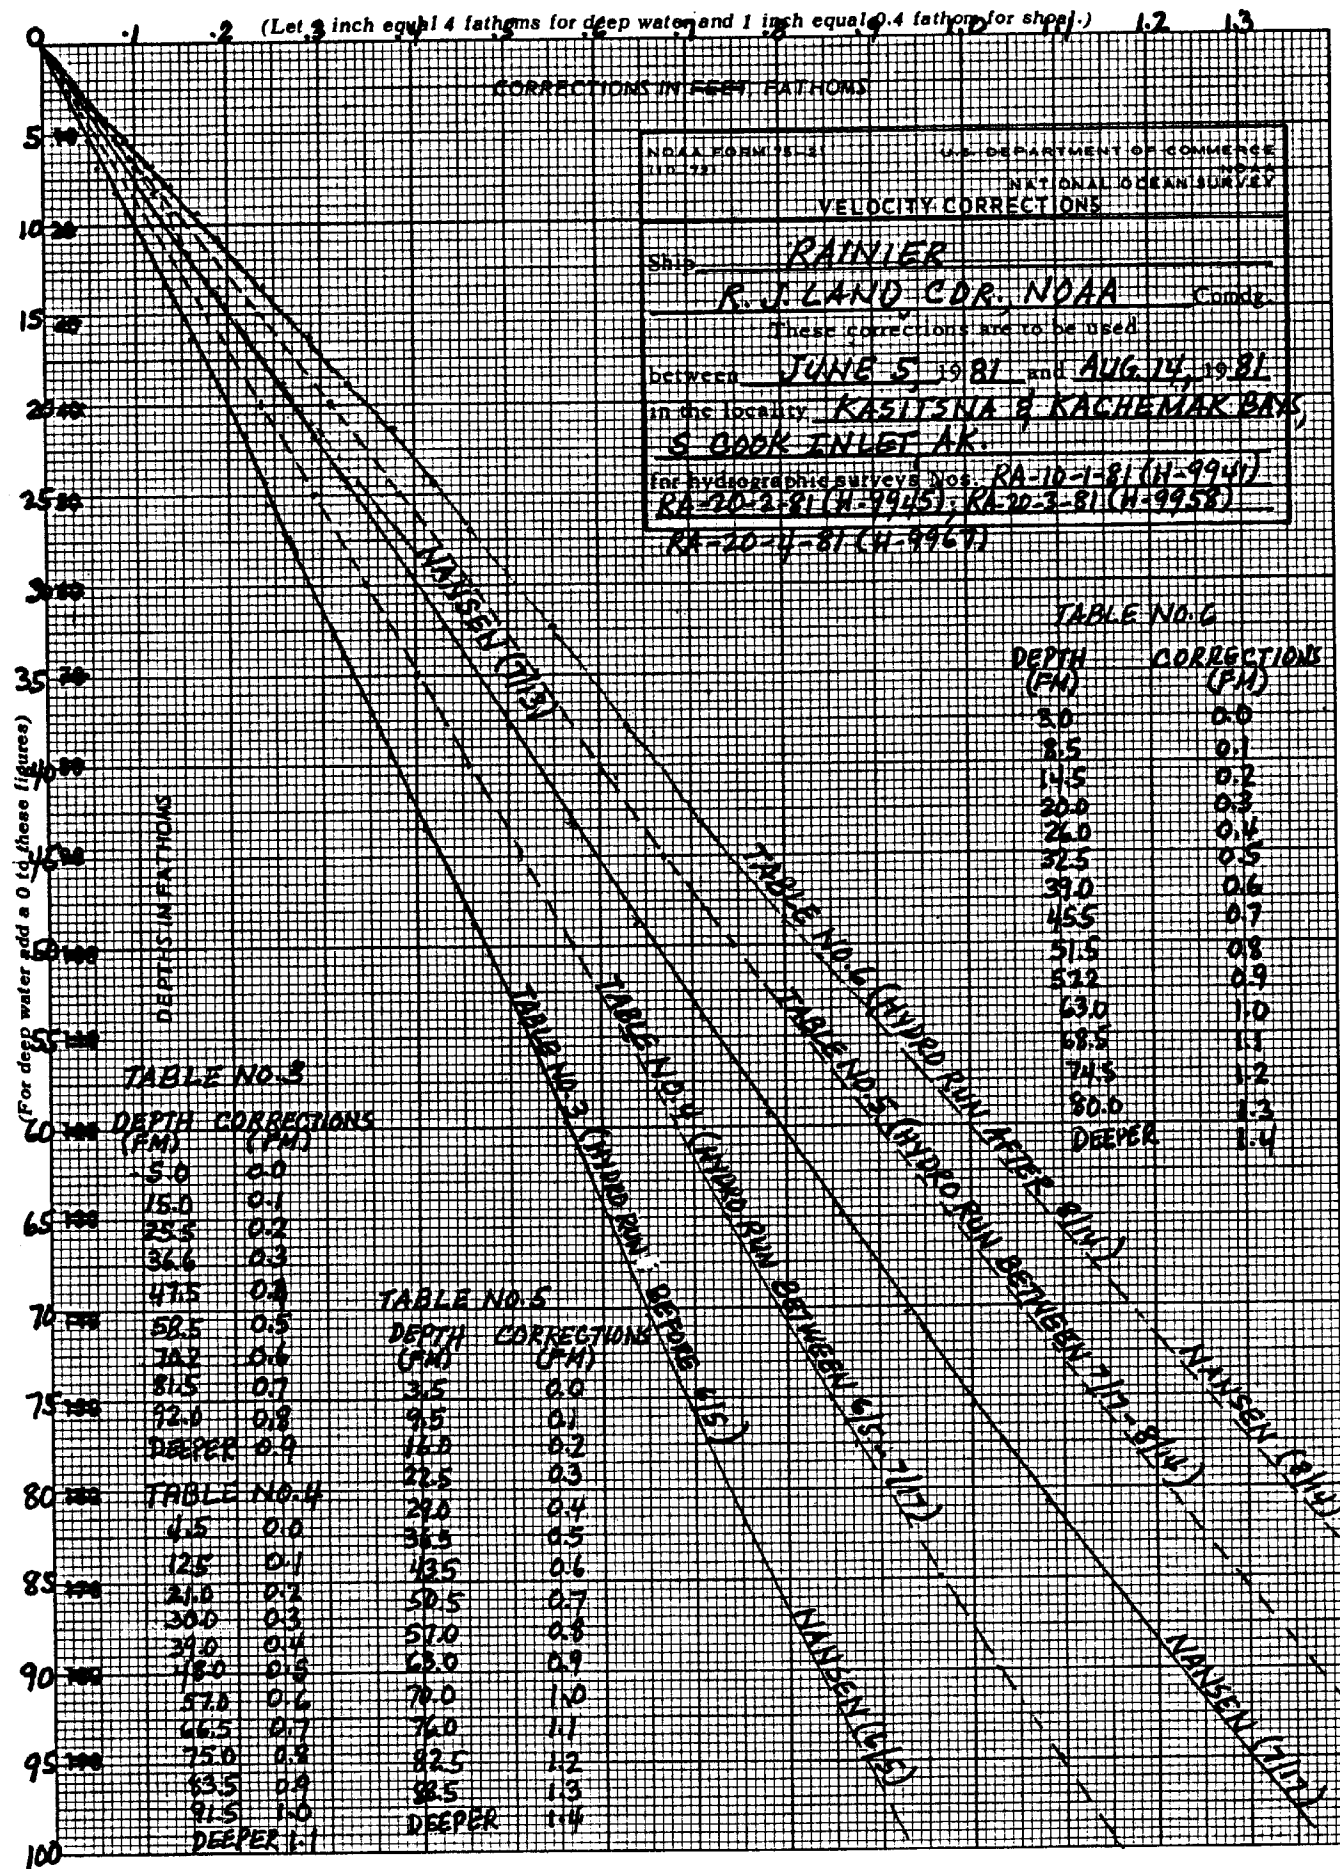 (Let 1 inch equal 4 fathoms for deep water and 1 inch equal 0.4 fathom for shoal.)
0 .1 .2 .3 .4 .5 .6 .7 .8 .9 1.0 1.1 1.2 1.3
CORRECTIONS IN FEET FATHOMS
NOAA FORM 75-21 U.S. DEPARTMENT OF COMMERCE
NOAA
NATIONAL OCEAN SURVEY
VELOCITY CORRECTIONS
Ship RAINIER
R. J. LAND, CDR., NOAA Comdg.
These corrections are to be used
between JUNE 5, 1981 and AUG. 14, 1981
in the locality KASITSNA & KACHEMAK BAYS,
S COOK INLET, AK.
for hydrographic surveys Nos. RA-10-1-81 (H-9941)
RA-20-2-81 (H-9945); RA-20-3-81 (H-9958)
RA-20-4-81 (H-9967)
5
10
15
20
25
30
35
40
45
50
55
60
65
70
75
80
85
90
95
100
(For deep water add a 0 to these figures)
DEPTHS IN FATHOMS
NANSEN (7/13)
TABLE NO. 6 (HYDRO RUN AFTER 8/14)
NANSEN (8/14)
TABLE NO. 5 (HYDRO RUN BETWEEN 7/17-8/14)
NANSEN (7/17)
TABLE NO. 4 (HYDRO RUN BETWEEN 6/5-7/17)
TABLE NO. 3 (HYDRO RUN: BEFORE 6/5)
NANSEN (6/5)
TABLE NO. 6
DEPTH CORRECTIONS
(FM) (FM)
3.0 0.0
8.5 0.1
14.5 0.2
20.0 0.3
26.0 0.4
32.5 0.5
39.0 0.6
45.5 0.7
51.5 0.8
57.2 0.9
63.0 1.0
68.5 1.1
74.5 1.2
80.0 1.3
DEEPER 1.4
TABLE NO. 3
DEPTH CORRECTIONS
(FM) (FM)
5.0 0.0
15.0 0.1
25.5 0.2
36.6 0.3
47.5 0.4
58.5 0.5
70.2 0.6
81.5 0.7
92.0 0.8
DEEPER 0.9
TABLE NO. 4
4.5 0.0
12.5 0.1
21.0 0.2
30.0 0.3
39.0 0.4
48.0 0.5
57.0 0.6
66.5 0.7
75.0 0.8
83.5 0.9
91.5 1.0
DEEPER 1.1
TABLE NO. 5
DEPTH CORRECTIONS
(FM) (FM)
3.5 0.0
9.5 0.1
16.0 0.2
22.5 0.3
29.0 0.4
36.5 0.5
43.5 0.6
50.5 0.7
57.0 0.8
63.0 0.9
70.0 1.0
76.0 1.1
82.5 1.2
88.5 1.3
DEEPER 1.4